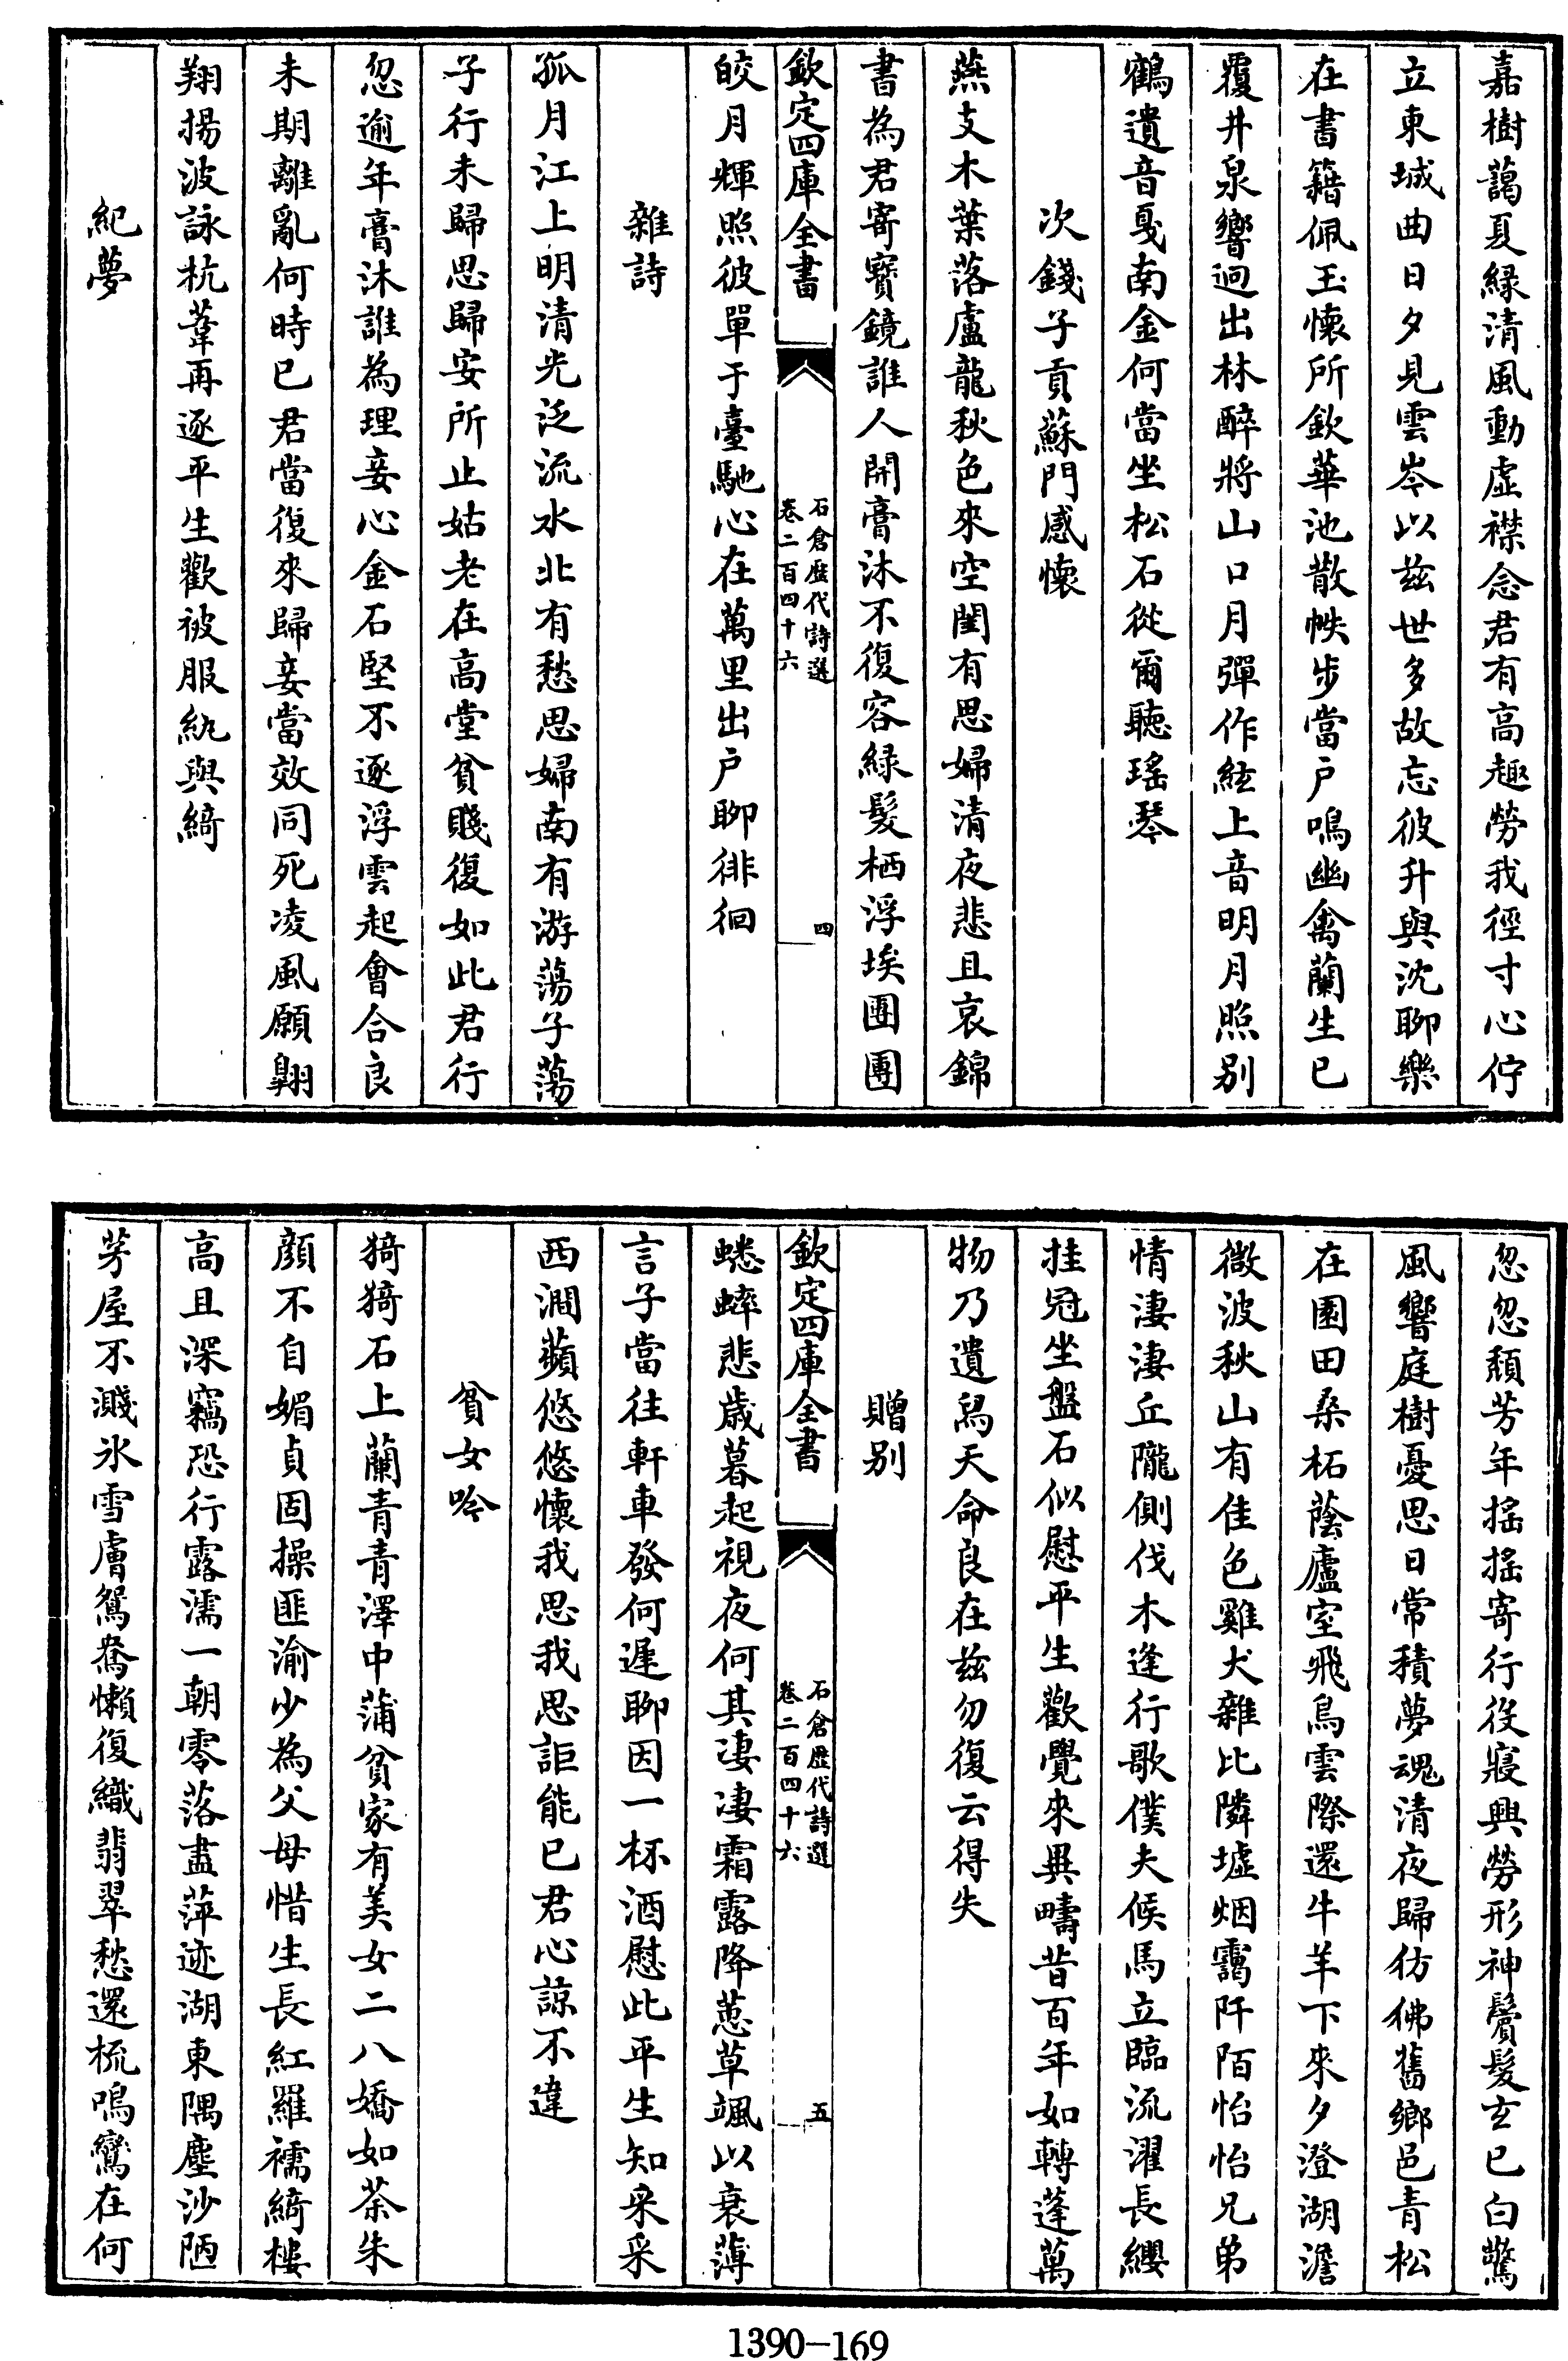 嘉樹藹夏緑清風動虚襟念君有高趣勞我徑寸心佇
立東城曲日夕見雲岑以兹世多故忘彼升與沈聊樂
在書籍佩玉懐所欽華池散帙步當户鳴幽禽蘭生已
覆井泉響迥出林醉將山口月彈作絃上音明月照别
鶴遺音戛南金何當坐松石從爾聽瑶琴
次錢子貢蘇門感懐
燕支木葉落盧龍秋色來空閨有思婦清夜悲且哀錦
書為君寄寳鏡誰人開膏沐不復容緑髮栖浮埃團團
欽定四庫全書
石倉歴代詩選
卷二百四十六
四
皎月輝照彼單于臺馳心在萬里出户聊徘徊
雜詩
孤月江上明清光泛流水北有愁思婦南有游蕩子蕩
子行未歸思歸安所止姑老在高堂貧賤復如此君行
忽逾年膏沐誰為理妾心金石堅不逐浮雲起會合良
未期離亂何時已君當復來歸妾當效同死凌風願翺
翔揚波詠杭葦再逐平生歡被服紈與綺
紀夢
忽忽頽芳年揺揺寄行役寢興勞形神鬢髮玄已白驚
風響庭樹憂思日常積夢魂清夜歸彷彿舊鄉邑青松
在園田桑柘蔭廬室飛鳥雲際還牛羊下來夕澄湖澹
微波秋山有佳色雞犬雜比隣墟烟靄阡陌怡怡兄弟
情淒淒丘隴側伐木逢行歌僕夫候馬立臨流濯長纓
挂冠坐盤石似慰平生歡覺來異疇昔百年如轉蓬萬
物乃遺舄天命良在兹勿復云得失
贈别
欽定四庫全書
石倉歴代詩選
卷二百四十六
五
蟋蟀悲歳暮起視夜何其凄凄霜露降蕙草颯以衰薄
言子當往軒車發何遲聊因一杯酒慰此平生知采采
西澗蘋悠悠懐我思我思詎能已君心諒不違
貧女吟
猗猗石上蘭青青澤中蒲貧家有美女二八嬌如荼朱
顔不自媚貞固操匪渝少為父母惜生長紅羅襦綺樓
高且深竊恐行露濡一朝零落盡萍迹湖東隅塵沙陋
芳屋不濺氷雪膚鴛鴦懶復織翡翠愁還梳鳴鸞在何
1390-169